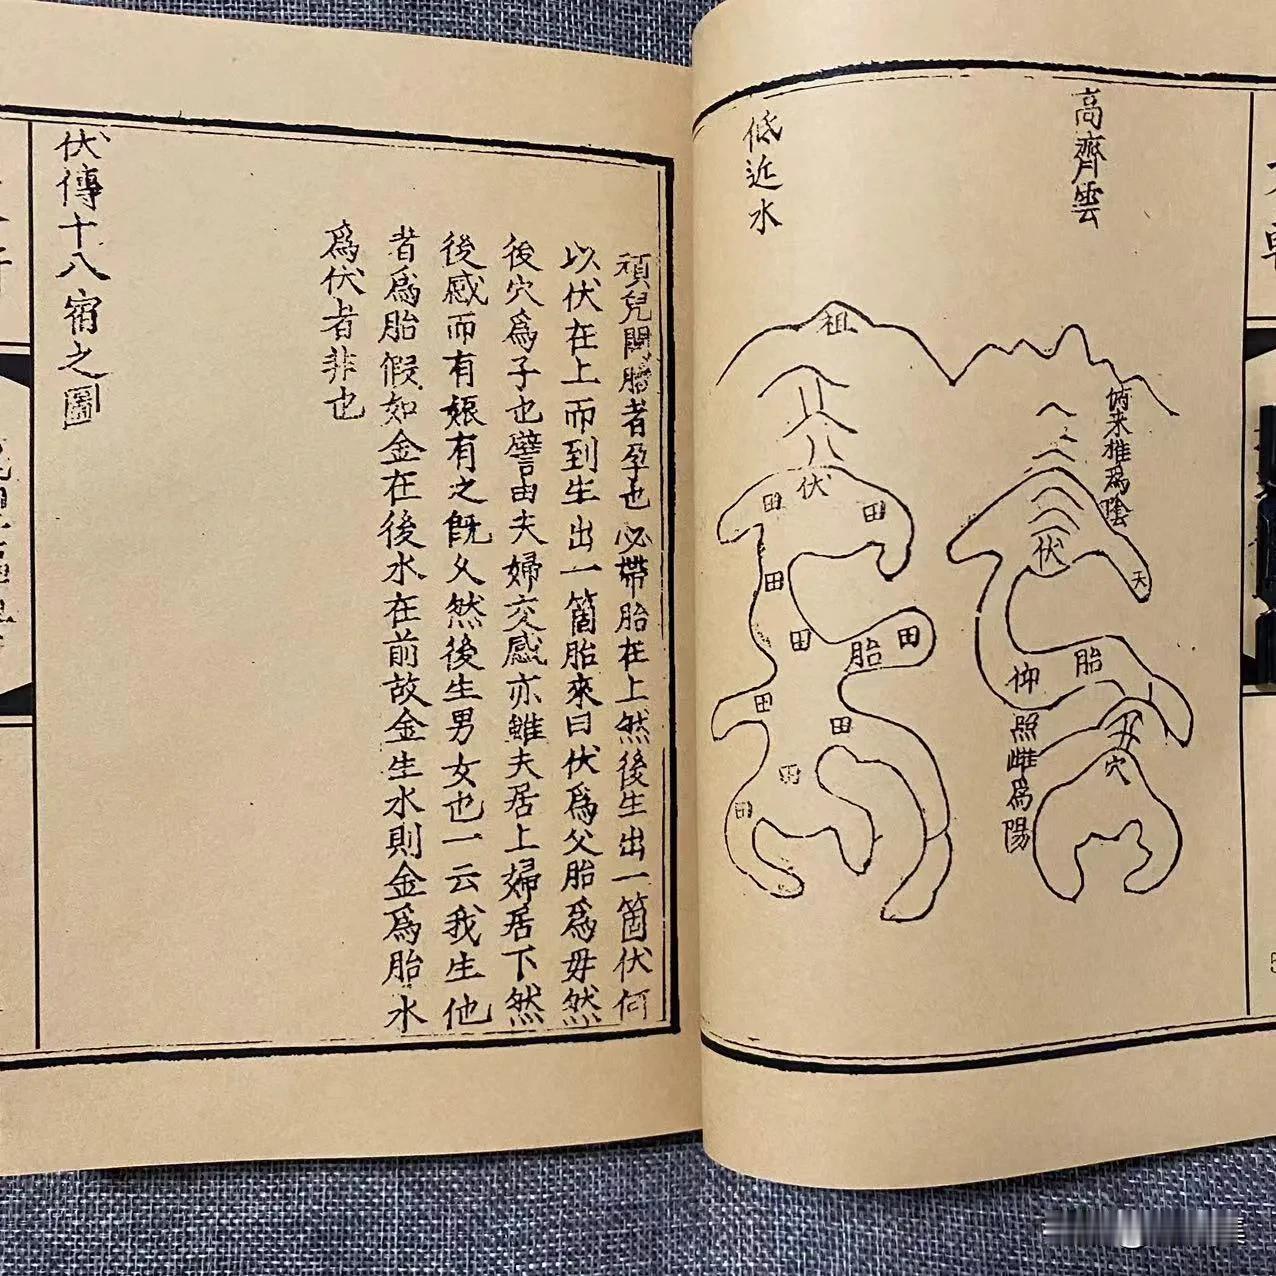 高齊雲
俯来雄爲陰
伏
天
胎
仰照雌爲陽
穴
低近水
祖
伏
田
田
田
田
胎
田
田
田
田
兒
者孕也必帶胎在上然後生出一箇伏何
以伏在上而到生出一箇胎來曰伏爲父胎爲毋然
後穴爲子也譬由夫婦交感亦雖夫居上婦居下然
後感而有娠有之旣久然後生男女也一云我生他
者爲胎假如金在後水在前故金生水則金爲胎水
爲伏者非也
伏傳十八宿之圖